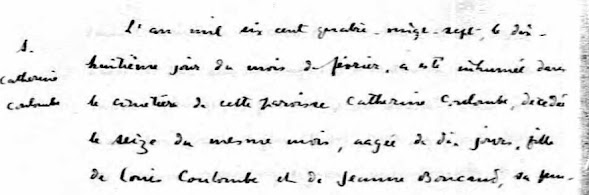 L'an mil six cent quatre-vingt-sept, le dix-
S.
huitième jour du mois de février, a été inhumée dans
Catherine
le cimetière de cette paroisse, Catherine Coulombe, décédée
Coulombe
le seize du mesme mois, aagée de dix jours, fille
de Louis Coulombe et de Jeanne Boucaud, sa fem-